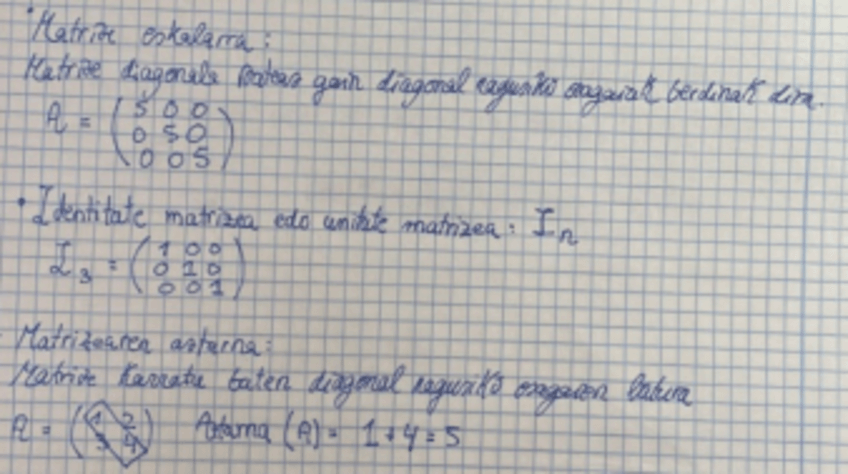 · Matrize eskalarra:
Matrize diagonala izateaz gain diagonal nagusiko osagaiak berdinak dira.
A = ( 5 0 0
0 5 0
0 0 5 )
· Identitate matrizea edo unitate matrizea: In
I3 = ( 1 0 0
0 1 0
0 0 1 )
Matrizearen aztarna:
Matrize karratu baten diagonal nagusiko osagaien batura
A = ( 1 2
3 4 ) Aztarna (A) = 1 + 4 = 5